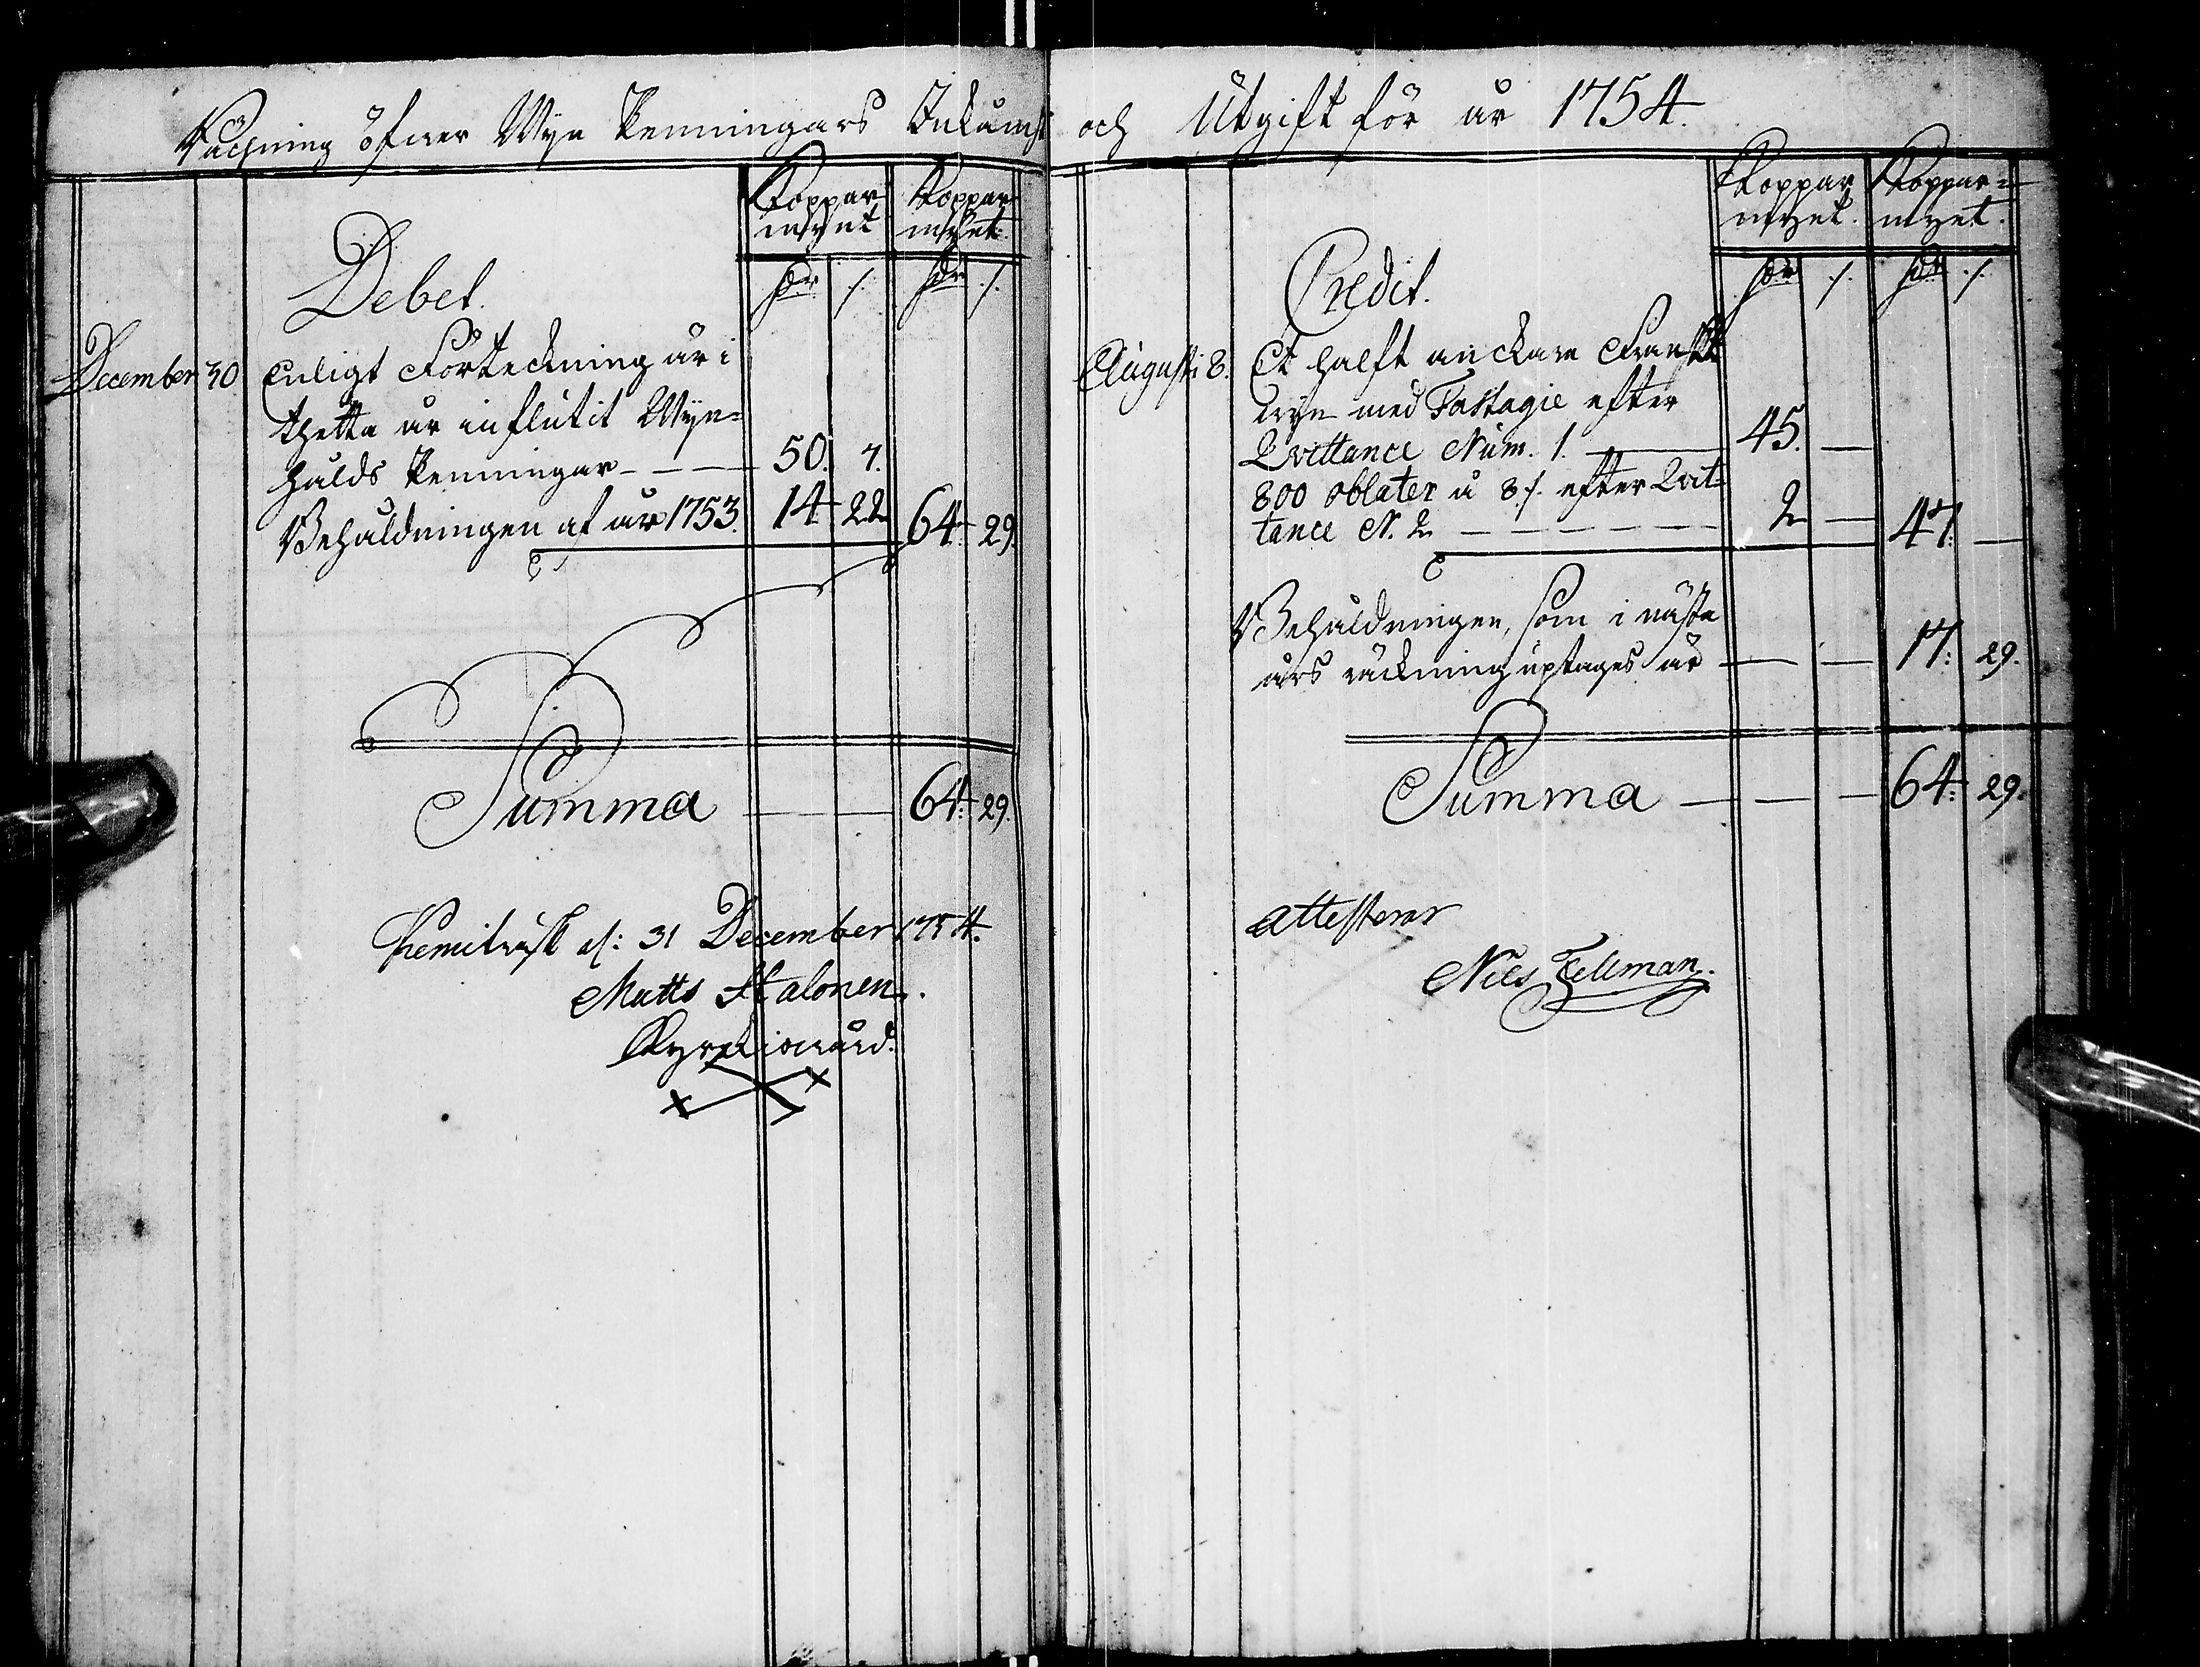 Räckning öfwer Wijn Penningars Inkomst och Utgift för år 1754.
Koppar
mynt
Koppar
mynt.
Debet.
dr
/.
dr
/.
December 30. Enligt Förteckning är i
thetta år influtit Wijn-
halds Penningar - - - 50. 7.
Behåldningen af år 1753. 14 22 64. 29.
Summa 64. 29.
Kemiträsk d: 31 December 1754.
Matts Halonen.
Kyrckiowärd.
Koppar
mynt.
Koppar-
mynt.
Credit.
dr
/.
dr
/.
Augusti 8. Et halft anckare Franskt
wijn med Fastagie efter
Qvittance Num. 1. — 45. —
800 oblater a 8 /. efter Qvit-
tance N. 2 - - - - - 2 — 47. —
Behåldningen, som i nästa
års räckning uptages är — — 17. 29.
Summa — — — 64. 29.
attesterar
Nils Fellman.